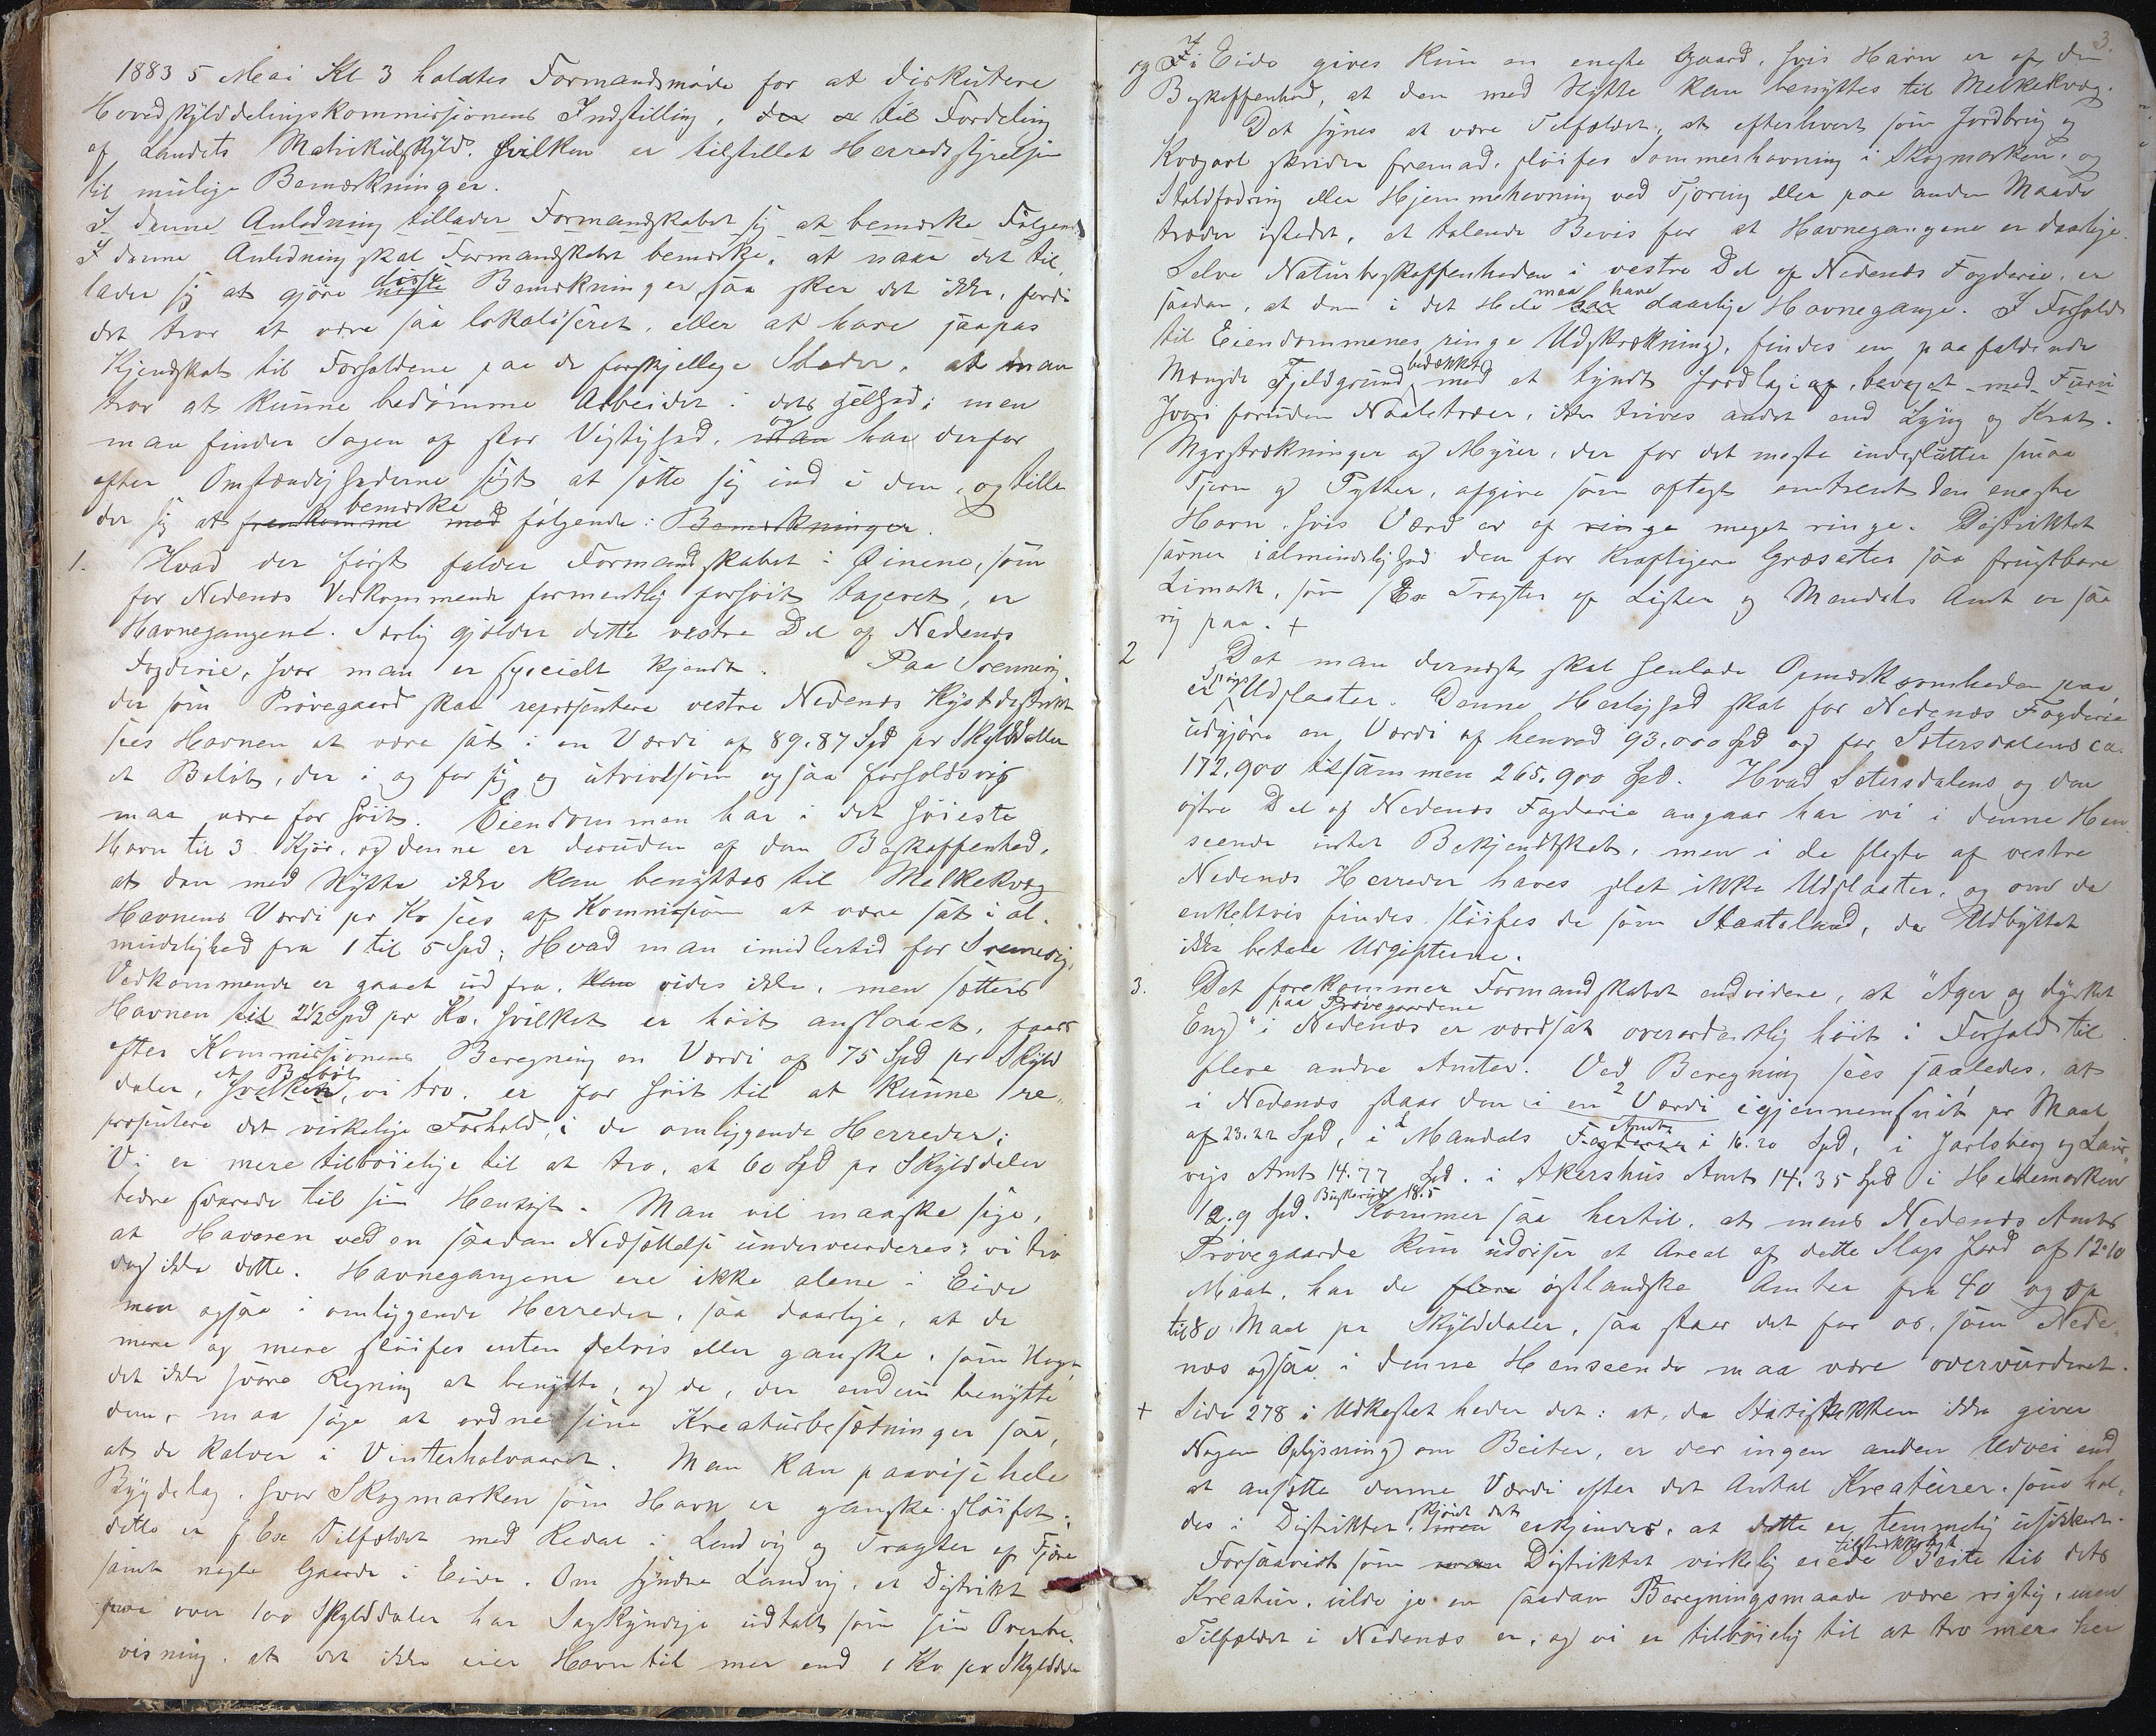 1883 5 Mai Kl 3 holdtes Formandsmøde for at diskutere
Hovedskylddelingskommissionens Indstilling, der er til Fordeling
af Landets Matrikulskyld, hvilken er tilstillet Herredsstyrelsen
til mulige Bemærkninger.
I denne Anledning tillader Formandskabet sig at bemærke Følgende
I denne Anledning skal Formandskabet bemærke, at naar det til„
lader sig at gjøre disse nogle Bemærkninger, saa sker det ikke, fordi
det tror at være saa lokaliseret, eller at have saapas
Kjendskab til Forholdene paa de forskjellige Steder, at man
tror at kunne bedømme Arbeidet i dets Helhed; men
man finder Sagen af stor Vigtighed, og man har derfor
efter Omstændighederne søgt at sætte sig ind i den, og tilla
der sig at bemærke fremkomme med følgende: Bemærkninger.
1. Hvad der først falder Formandskabet i Øinene, som
for Nedenæs Vedkommende formentlig forhøit taxeret, er
Havnegangene. Særlig gjælder dette vestre Del af Nedenæs
Fogderie, hvor man er specielt kjendt. Paa Svennevig
der som Prøvegaard skal repræsentere vestre Nedenæs Kystdistrikt
sees Havnen at være sat i en Værdi af 89.87 Spd pr Skylddaler
et Beløb, der i og for sig og utvivlsom ogsaa forholdsvis
maa være for høit. Eiendommen har i det høieste
Havn til 3 Kjør, og denne er desuden af den Beskaffenhed,
at den med Nytte ikke kan benyttes til Melkekvæg
Havnens Værdi pr Ko sees af Kommissionen at være sat i al„
mindelighed fra 1 til 5 Spd; Hvad man imidlertid for Svennevigs
Vedkommende er gaaet ud fra, kan vides ikke, men sættes
Havnen til 2½ Spd pr Ko, hvilket er høit anslaaet, faaes
efter Kommissionens Beregning en Værdi af 75 Spd pr Skyld
daler, et Beløb hvilken, vi tro, er for høit til at kunne re„
præsentere det virkelige Forhold, i de omliggende Herreder;
Vi er mere tilbøielige til at tro, at 60 Spd pr Skylddaler
bedre svarede til sin Hensigt. Man vil maaske sige,
at Havnen ved en saadan Nedsættelse undervurderes; vi tro
dog ikke dette. Havnegangene ere ikke alene i Eide
men ogsaa i omliggende Herreder, saa daarlige, at de
mere og mere sløifes enten delvis eller ganske, som Noget
det ikke svare Regning at benytte, og de, der endnu benytte
dem, maa søge at ordne sine Kreaturbesætninger saa,
at de kalver i Vinterhalvaaret. Man kan paavise hele
Bygdelag, hvor Skogmarken som Havn er ganske sløifet;
dette er f Ex Tilfældet med Redal i Landvig og Tragter af Fjære
samt nogle Gaarde i Eide. Om søndre Landvig, et Distrikt
paa over 100 Skylddaler har Sagkyndige udtalt som sin Overbe„
visning, at det ikke eier Havn til mer end 1 Ko pr Skylddaler
3.
og I i Eide gives kun en eneste Gaard, hvis Havn er af den
Beskaffenhed, at den med Nytte kan benyttes til Melkekvæg.
Det synes at være Tilfældet, at efterhvert som Jordbrug og
Kvægavl skrider fremad, sløifes Sommerhavning i Skogmarken, og
Staldfodring eller Hjemmehavning ved Tjoring eller paa anden Maade
træder istedet, et talende Bevis for at Havnegangene er daarlige.
Selve Naturbeskaffenheden i vestre Del af Nedenæs Fogderie, er
saadan, at den i det Hele maa have har daarlige Havnegange. I Forhold
til Eiendommenes ringe Udstrækning, findes en paafaldende
Mængde Fjeldgrund bedækket med et tyndt Jordlag af, bevoxet med Furu
hvori foruden Naaletræer, ikke trives andet end Lyng og Krat.
Myrstrækninger og Myrer, der for det meste indeslutter smaa
Tjern og Pytter, afgive som oftest omtrent den eneste
Havn, hvis Værd er af ringe meget ringe. Distriktet
savner i almindelighed den for kraftigere Græsarter saa frugtbare
Limark, som f Ex Tragter af Lister og Mandals Amt er saa
rig paa. +
2 Det man dernæst skal henlede Opmærksomheden paa,
er Skogs Udslaater. Denne Herlighed skal for Nedenæs Fogderie
udgjøre en Værdi af henved 93.000 Spd og for Sætersdalens ca.
172.900 tilsammen 265.900 Spd. Hvad Sætersdalens og den
østre Del af Nedenæs Fogderie angaar har vi i denne Hen„
seende intet Bekjendtskab, men i de fleste af vestre
Nedenæs Herreder haves slet ikke Udslaater, og om de
enkeltvis findes sløifes de som Slaateland, da Udbyttet
ikke betale Udgifterne.
3. Det forekommer Formandskabet endvidere, at "Ager og dyrket
Eng" paa Prøvegaardene i Nedenæs er værdsat overordentlig høit i Forhold til
flere andre Amter. Ved Beregning sees saaledes, at
i Nedenæs staar den i en Værdi igjennemsnit pr Maal
af 23.22 Spd, i Mandals Amt Fogderie i 16.20 Spd, i Jarlsberg og Laur„
vigs Amt 14.77 Spd. i Akershus Amt 14.35 Spd i Hedemarken
12.9 Spd. Buskerud 18.5 Kommer saa hertil, at mens Nedenæs Amts
Prøvegaarde kun udviser et Areal af dette Slags Jord af 12.10
Maal, har de flere østlandske Amter fra 40 og op
til 80 Maal pr Skylddaler, saa staar det for os, som Nede„
næs ogsaa i denne Henseende maa være overvurderet.
+ Side 278 i Udkastet heder det: at, da Statistikken ikke giver
Nogen Oplysning om Beiter, er der ingen anden Udvei end
at ansætte denne Værdi efter det Antal Kreaturer, som hol„
des i Distriktet, skjønt det men erkjendes, at dette er temmelig usikkert.
Forsaavidt som man Distriktet virkelig eiede tilstrækkeligt Beite til dets
Kreatur, vilde jo en saadan Beregningsmaade være rigtig, men
Tilfældet i Nedenæs er, og vi er tilbøielig til at tro mere her